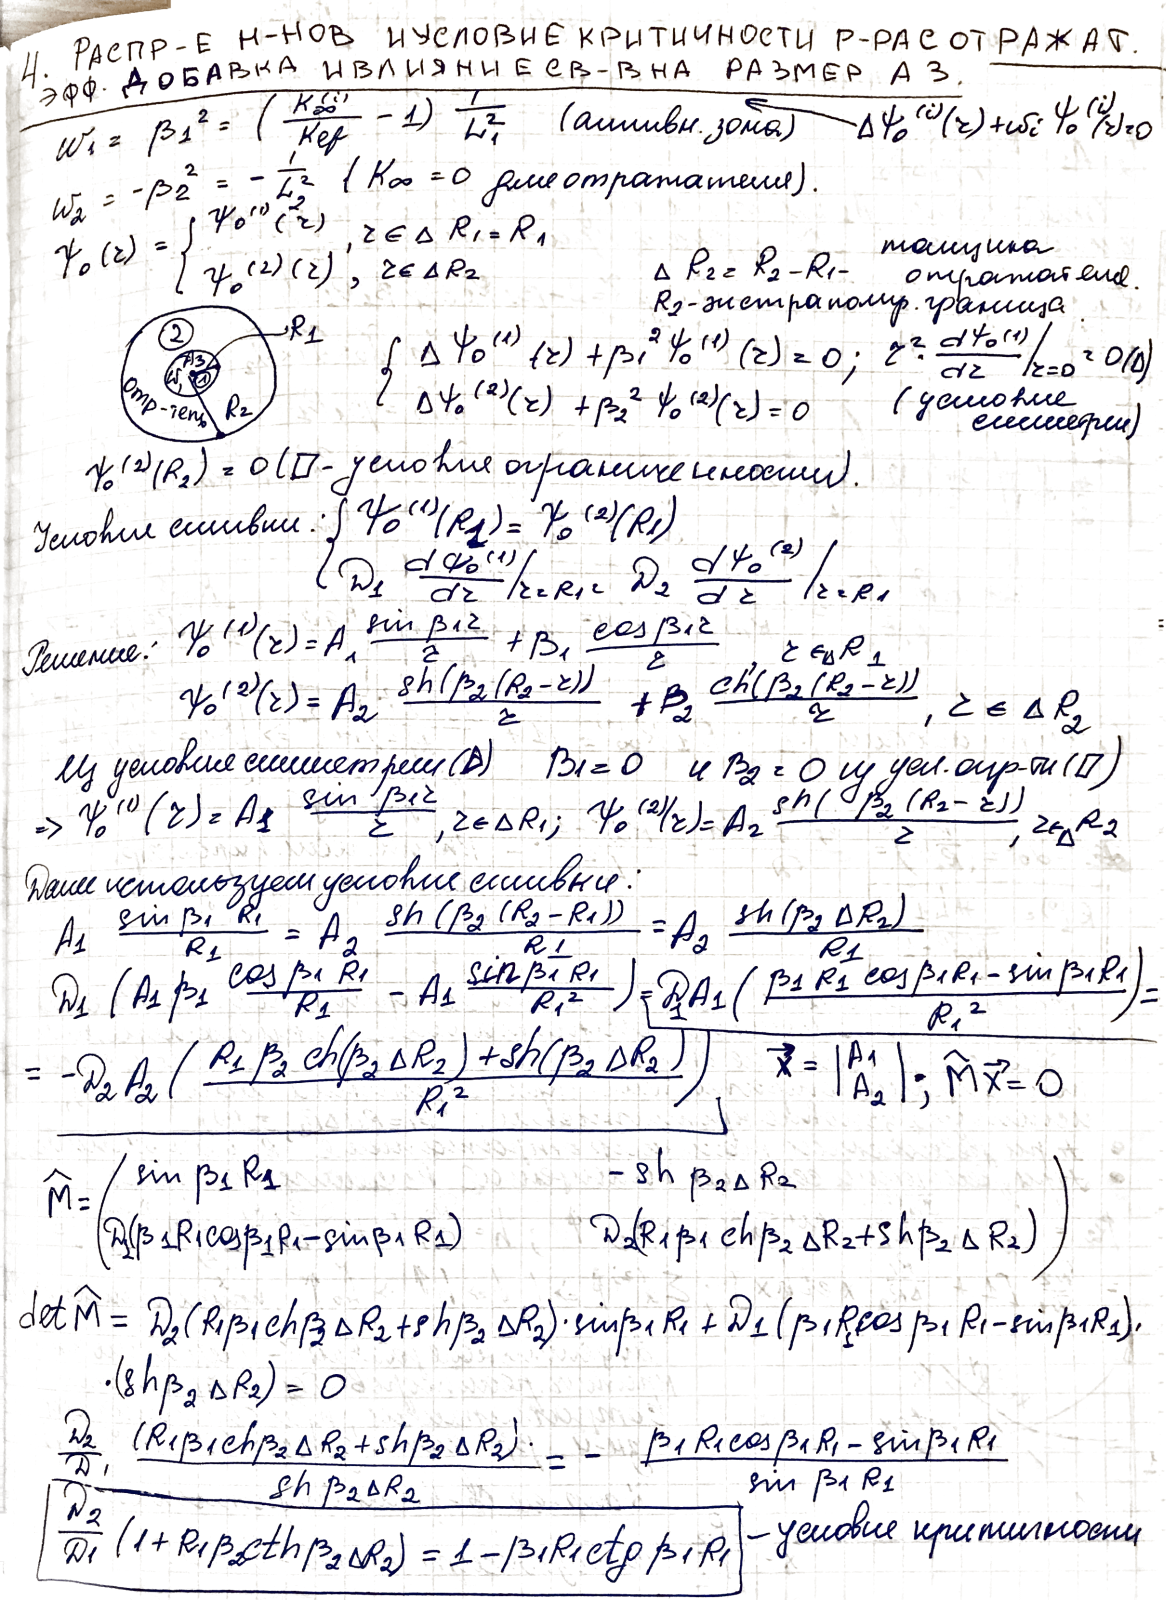 4. РАСПР-Е Н-НОВ И УСЛОВИЕ КРИТИЧНОСТИ Р-РА С ОТРАЖАТ.
ЭФФ. ДОБАВКА И ВЛИЯНИЕ СВ-В НА РАЗМЕР АЗ.
ω₁ = β₁² = (K∞⁽ⁱ⁾/Kef - 1) 1/L₁² (активн. зона) ΔΨ₀⁽ⁱ⁾(r)+ωᵢ Ψ₀⁽ⁱ⁾(r)=0
ω₂ = -β₂² = - 1/L₂² (K∞ = 0 для отражателя).
Ψ₀(r) = { Ψ₀⁽¹⁾(r), r ∈ Δ R₁ = R₁
Ψ₀⁽²⁾(r), r ∈ Δ R₂
Δ R₂ = R₂ - R₁ - толщина отражателя.
R₂ - экстраполир. граница
2 R₁
АЗ 1
отр-тель R₂
{ Δ Ψ₀⁽¹⁾(r) + β₁² Ψ₀⁽¹⁾(r) = 0; r² · dΨ₀⁽¹⁾/dr /r=0 = 0 (Δ)
ΔΨ₀⁽²⁾(r) + β₂² Ψ₀⁽²⁾(r) = 0 (условие симметрии)
Ψ₀⁽²⁾(R₂) = 0 (□ - условие ограниченности).
Условие сшивки: { Ψ₀⁽¹⁾(R₁) = Ψ₀⁽²⁾(R₁)
D₁ dΨ₀⁽¹⁾/dr /r=R₁ = D₂ dΨ₀⁽²⁾/dr /r=R₁
Решение: Ψ₀⁽¹⁾(r) = A₁ sin β₁r/r + B₁ cos β₁r/r, r ∈ Δ R₁
Ψ₀⁽²⁾(r) = A₂ sh(β₂(R₂-r))/r + B₂ ch(β₂(R₂-r))/r, r ∈ Δ R₂
Из условия симметрии (Δ) B₁ = 0 и B₂ = 0 из усл. огр-ти (□)
=> Ψ₀⁽¹⁾(r) = A₁ sin β₁r/r, r ∈ Δ R₁; Ψ₀⁽²⁾(r) = A₂ sh(β₂(R₂-r))/r, r ∈ Δ R₂
Далее используем условие сшивки:
A₁ sin β₁ R₁/R₁ = A₂ sh(β₂(R₂-R₁))/R₁ = A₂ sh(β₂ Δ R₂)/R₁
D₁ (A₁ β₁ cos β₁ R₁/R₁ - A₁ sin β₁ R₁/R₁²) = D₁A₁ (β₁ R₁ cos β₁R₁ - sin β₁R₁/R₁²) =
= -D₂ A₂ (R₁ β₂ ch(β₂ Δ R₂) + sh(β₂ Δ R₂)/R₁²) x⃗ = |A₁ A₂|; M̂x⃗ = 0
M̂ = ( sin β₁ R₁ - sh β₂ Δ R₂
D₁(β₁R₁cosβ₁R₁ - sinβ₁R₁) D₂(R₁β₁ ch β₂ Δ R₂ + sh β₂ Δ R₂) )
det M̂ = D₂(R₁β₁ch β₂ Δ R₂ + sh β₂ Δ R₂) · sin β₁R₁ + D₁ (β₁R₁cos β₁ R₁ - sin β₁R₁) ·
· (sh β₂ Δ R₂) = 0
D₂/D₁ (R₁β₁ch β₂ Δ R₂ + sh β₂ Δ R₂)·/sh β₂ Δ R₂ = - β₁ R₁ cos β₁R₁ - sin β₁ R₁/sin β₁ R₁
D₂/D₁ (1 + R₁β₂cth β₂ Δ R₂) = 1 - β₁R₁ctg β₁R₁ - условие критичности